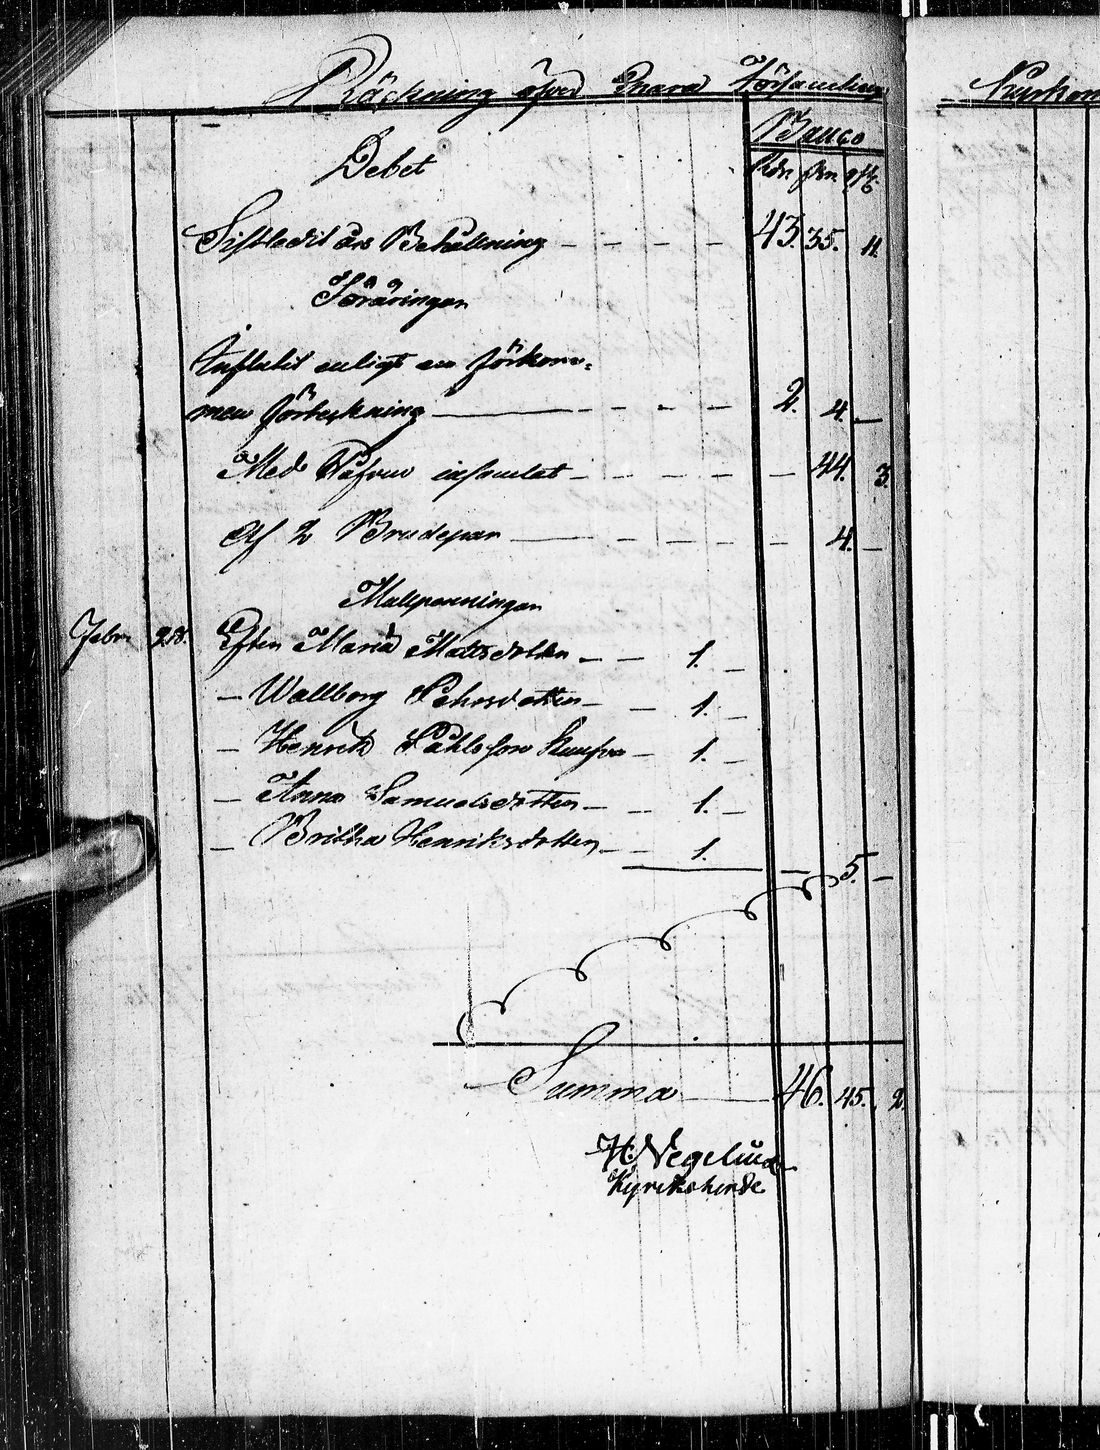 Räckning öfver Enare Församling
Banco
Debet
Rdr skr
Sistledit års Behållning - - - - 43. 35. 11.
Föräringar
Influtit enligt en förkom-
men förteckning - - - - 2. 4. —
Med Håfven insamlat - - - - - 44. 3.
Af 2 Brudepar - - - - - 4. —
Mallpenningar
Febr. 28. Efter Maria Mattsdotter - - 1. -
- Wallborg Pehrsdotter - - 1. -
- Henrik Påhlsson - 1. -
- Anna Samuelsdotter - - 1. -
- Britha Henriksdotter - - 1.
- 5. -
Summa — 46. 45. 2.
H. Negelius
Kyrkoherde